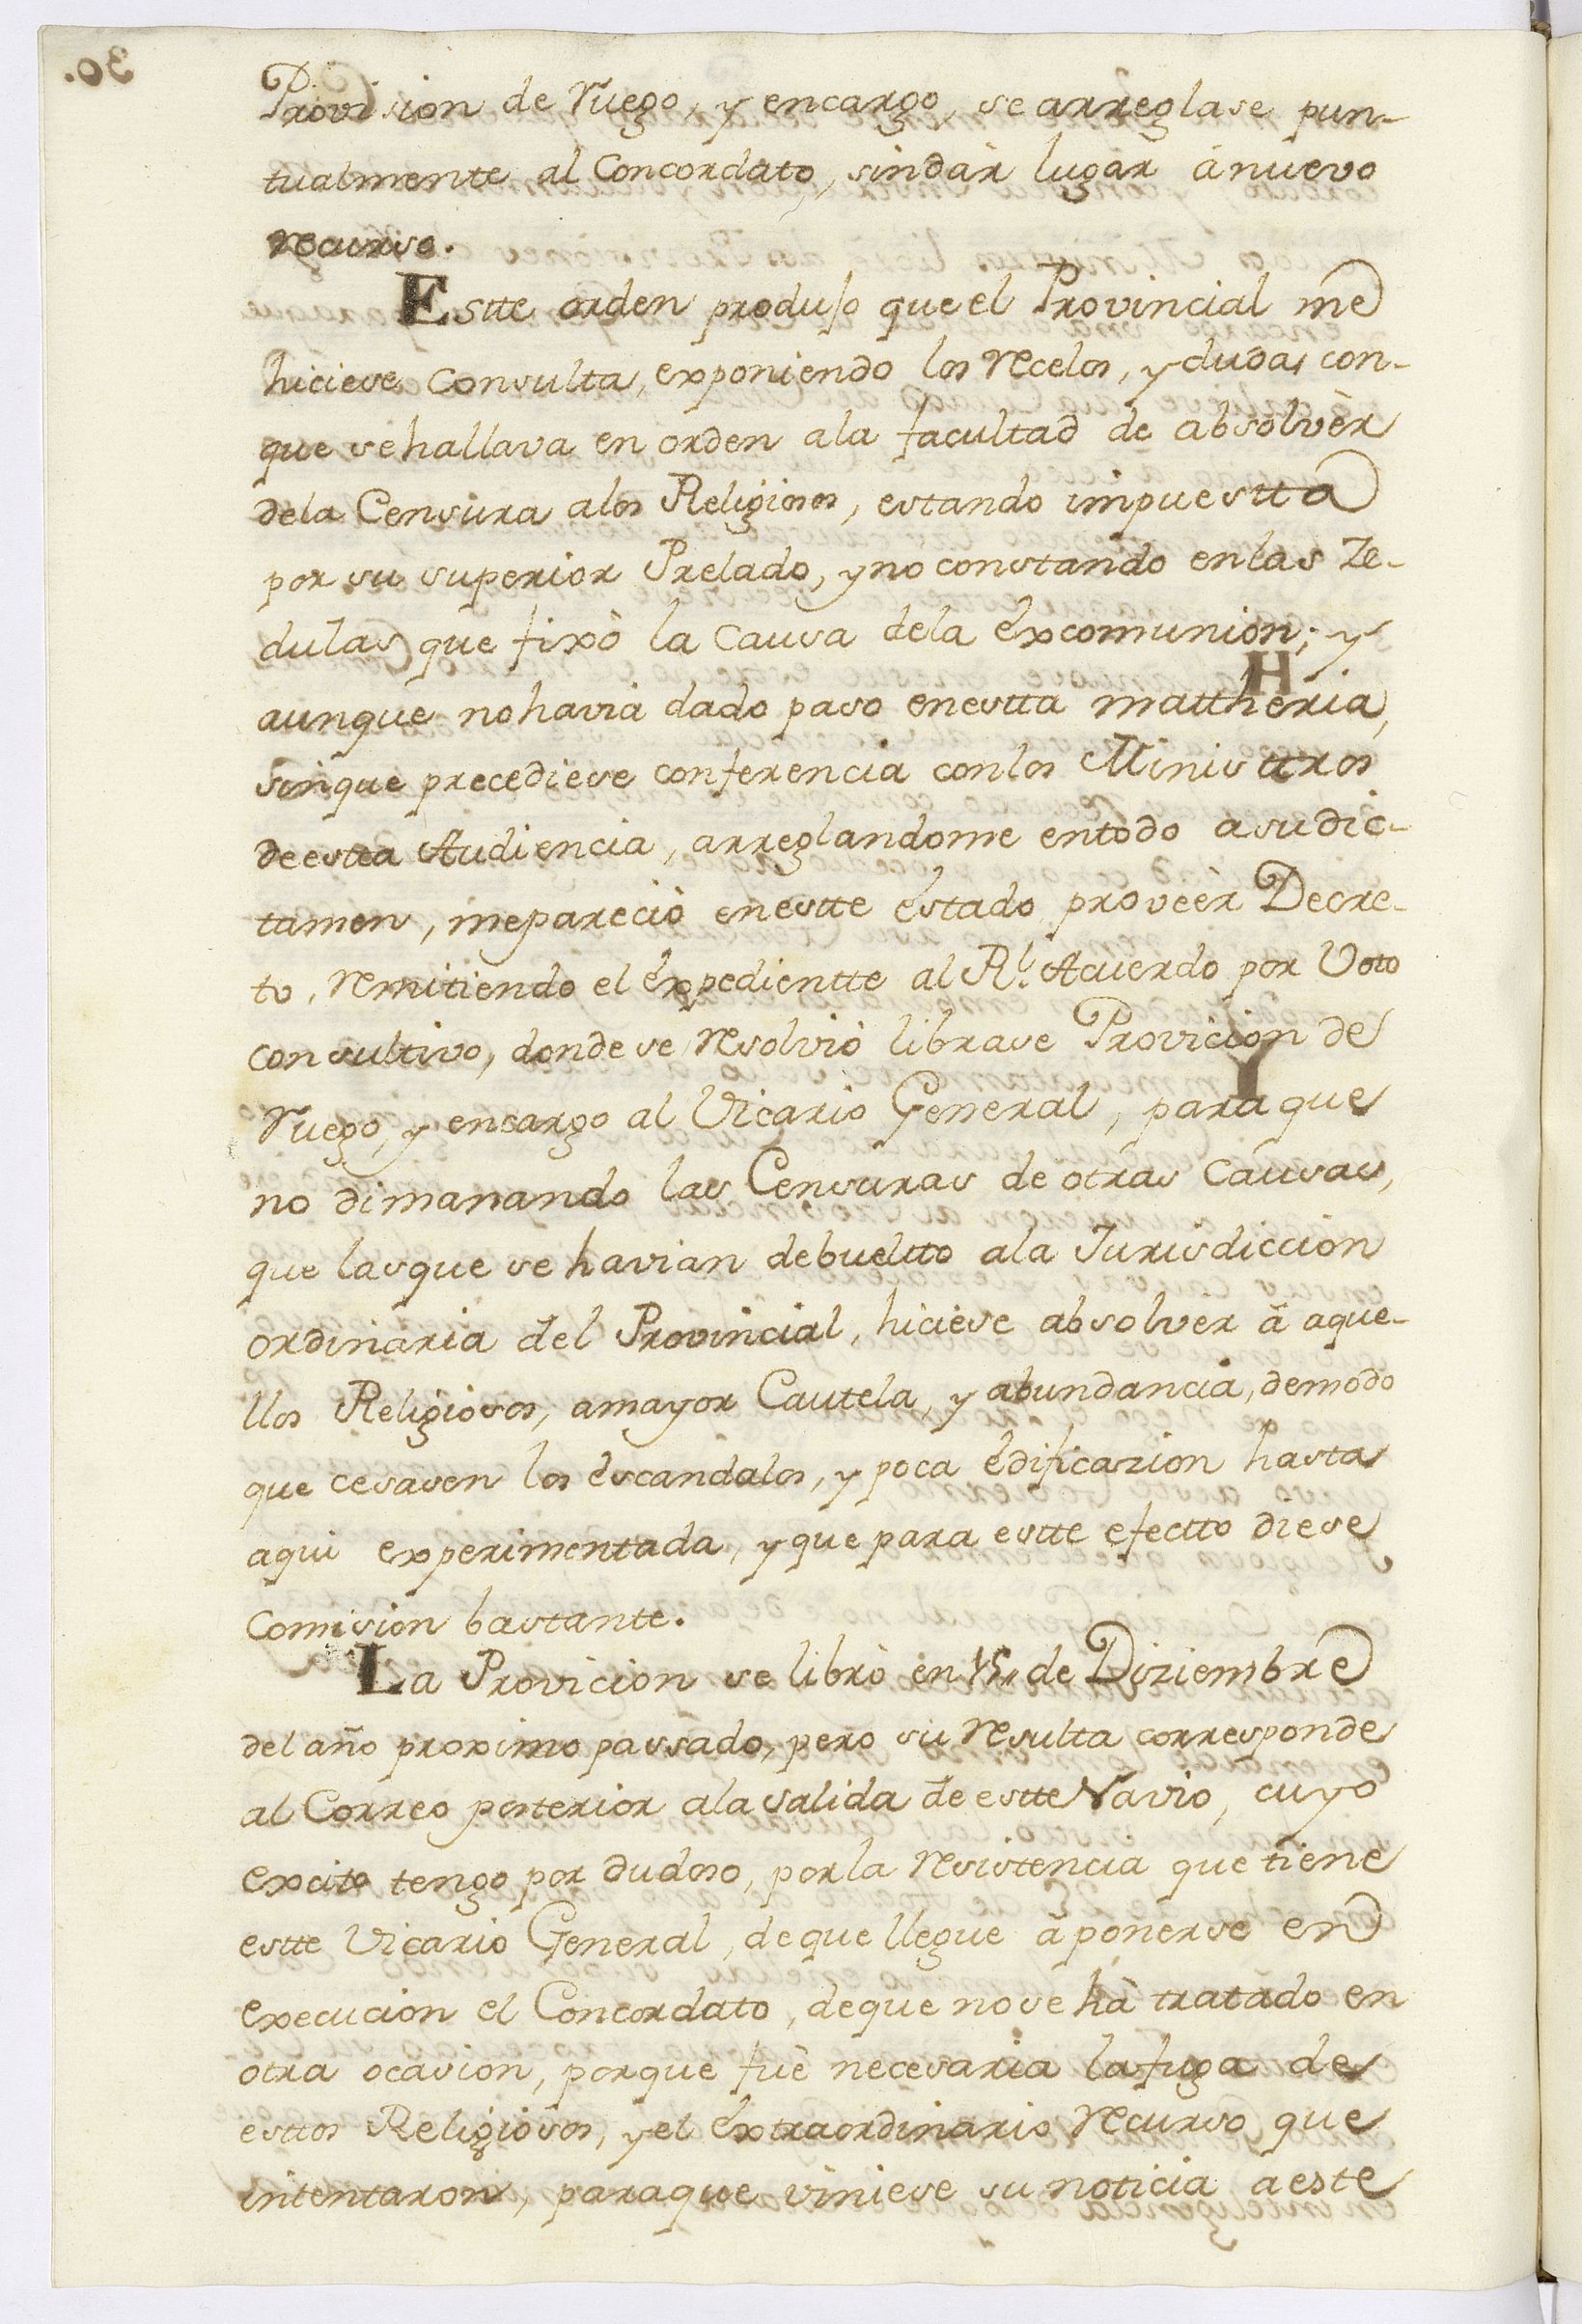 Provision de ruego, y encargo, se arreglase pun-
tualmente al Concordato, sindàr lugar à nuevo
recurso.
Estte orden produjo que el Provincial me
hiciese Consulta, exponiendo los recelos, y dudas con-
que se hallava en orden ala facultad de absolvèr
dela Censura alos Religiosos, estando impuestta
por su superior Prelado, y no constando enlas Ze-
dulas que fixò la Causa dela Excomunion; y
aunque nohavia dado paso enestta mattheria,
sinque precediese conferencia conlos Ministtros
deestta Audiencia, arreglandome entodo asudic-
tamen, mepareciò enestte estado proveèr Decre-
to, remitiendo el Expedientte al Rl. Acuerdo por Voto
consultivo, donde se resolviò librase Provicion de
ruego, y encargo al Vicario General, para que
no dimanando las Censuras de otras Causas,
que lasque se havian debueltto ala Jurisdiccion
ordinaria del Provincial, hiciese absolver à aque-
llos Religiosos, amayor Cautela, y abundancia, demodo
que cesasen los escandalos, y poca edificazion hasta
aqui experimentada, y que para estte efectto diese
Comision bastante.
La Provicion se librò en 15,, de Diziembre
del año proximo passado, pero su resulta corresponde
al Correo posterior ala salida de estte Navio, cuyo
excito tengo por dudoso, por la resistencia que tiene
estte Vicario General, de que llegue à ponerse en
execucion el Concordato, deque nose hà tratado en
otra ocasion, porque fuè necesaria la fuga de
esttos Religiosos, y el Extraordinario recurso que
intentaron, paraque viniese su noticia a este